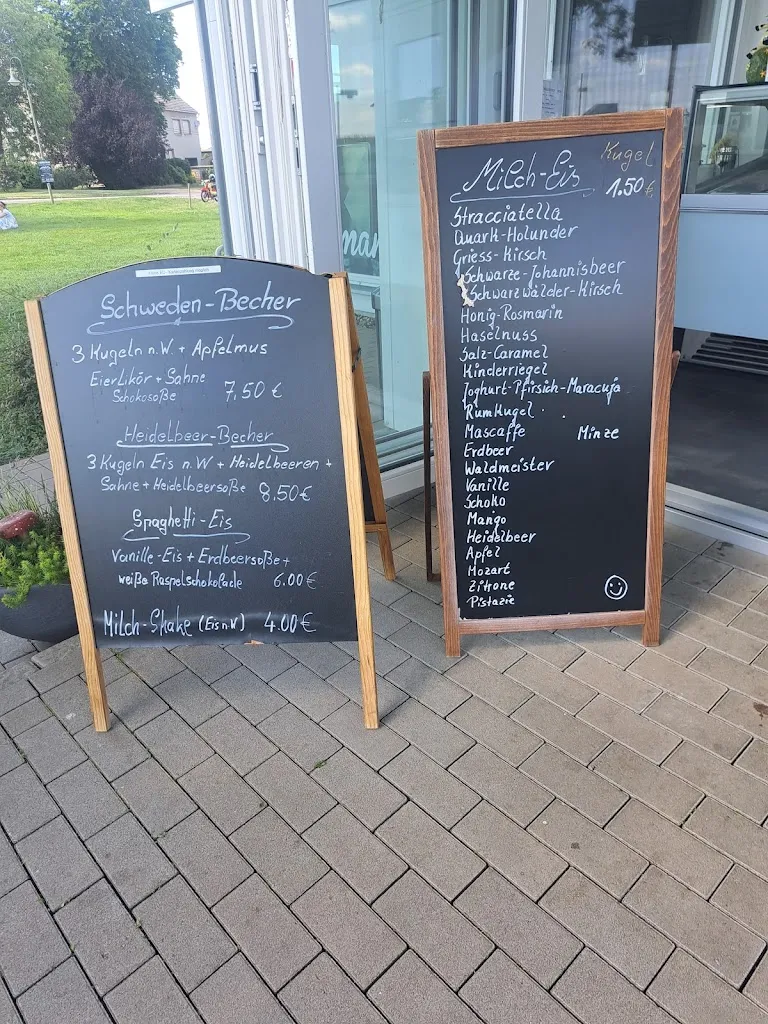 Schweden-Becher
3 Kugeln n.W + Apfelmus
Eierlikör + Sahne
Schokosoße 7,50 €
Heidelbeer-Becher
3 Kugeln Eis n.W + Heidelbeeren +
Sahne + Heidelbeersoße 8.50€
Spaghetti-Eis
Vanille-Eis + Erdbeersoße +
weiße Raspelschokolade 6.00€
Milch-Shake (Eis n.W) 4.00€
Milch-Eis
Kugel
1.50€
Stracciatella
Quark-Holunder
Griess-Kirsch
Schwarze-Johannisbeer
Schwarzwälder-Kirsch
Honig-Rosmarin
Haselnuss
Salz-Caramel
Kinderriegel
Joghurt-Pfirsich-Maracuja
Rumkugel
Mascaffe Minze
Erdbeer
Waldmeister
Vanille
Schoko
Mango
Heidelbeer
Apfel
Mozart
Zitrone
Pistazie